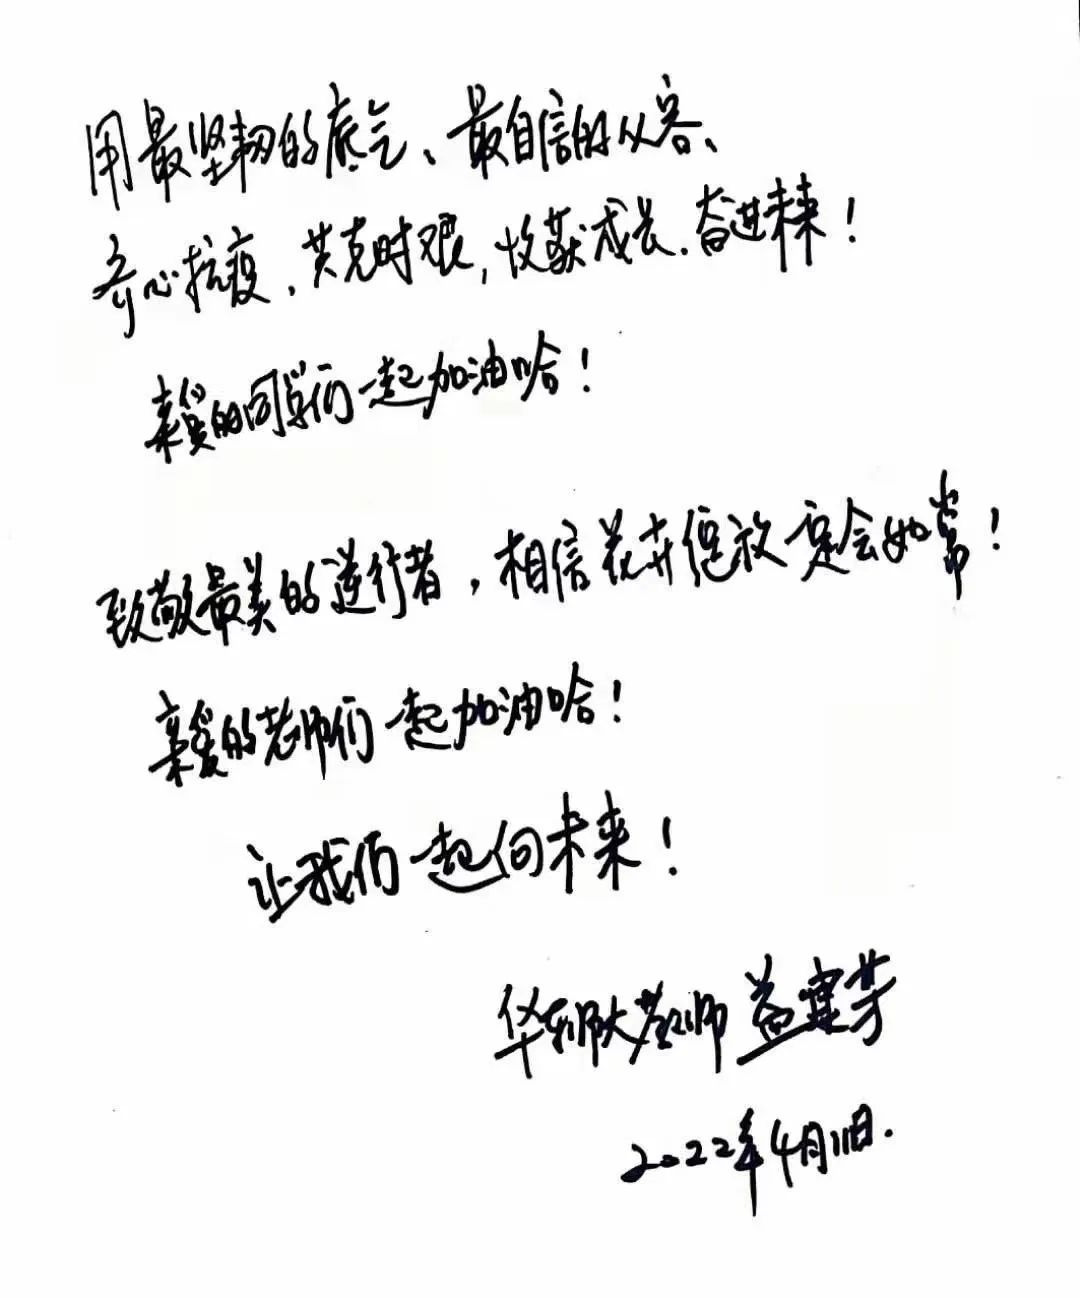 用最坚韧的底气、最自信的从容、
齐心抗疫,共克时艰,收获成长.奋进未来!
亲爱的同学们一起加油哈!
致敬最美的逆行者,相信花卉绽放定会如常!
亲爱的老师们一起加油哈!
让我们一起向未来!
华东师大教师
2022年4月11日.